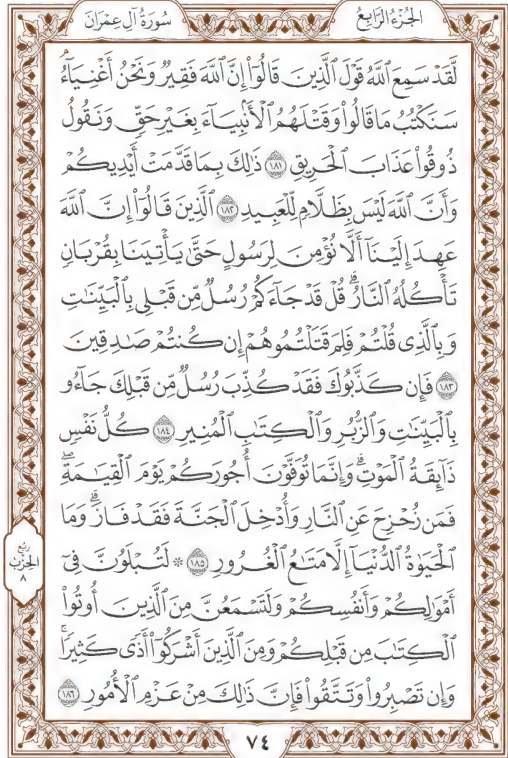 الجُزْءُ الرَّابِعُ
سُورَةُ آلِ عِمْرَانَ
لَّقَدْ سَمِعَ ٱللَّهُ قَوْلَ ٱلَّذِينَ قَالُوٓا۟ إِنَّ ٱللَّهَ فَقِيرٌ وَنَحْنُ أَغْنِيَآءُ ۘ
سَنَكْتُبُ مَا قَالُوا۟ وَقَتْلَهُمُ ٱلْأَنۢبِيَآءَ بِغَيْرِ حَقٍّ وَنَقُولُ
ذُوقُوا۟ عَذَابَ ٱلْحَرِيقِ ١٨١ ذَٰلِكَ بِمَا قَدَّمَتْ أَيْدِيكُمْ
وَأَنَّ ٱللَّهَ لَيْسَ بِظَلَّامٍ لِّلْعَبِيدِ ١٨٢ ٱلَّذِينَ قَالُوٓا۟ إِنَّ ٱللَّهَ
عَهِدَ إِلَيْنَآ أَلَّا نُؤْمِنَ لِرَسُولٍ حَتَّىٰ يَأْتِيَنَا بِقُرْبَانٍ
تَأْكُلُهُ ٱلنَّارُ ۗ قُلْ قَدْ جَآءَكُمْ رُسُلٌ مِّن قَبْلِى بِٱلْبَيِّنَٰتِ
وَبِٱلَّذِى قُلْتُمْ فَلِمَ قَتَلْتُمُوهُمْ إِن كُنتُمْ صَٰدِقِينَ
١٨٣ فَإِن كَذَّبُوكَ فَقَدْ كُذِّبَ رُسُلٌ مِّن قَبْلِكَ جَآءُو
بِٱلْبَيِّنَٰتِ وَٱلزُّبُرِ وَٱلْكِتَٰبِ ٱلْمُنِيرِ ١٨٤ كُلُّ نَفْسٍ
ذَآئِقَةُ ٱلْمَوْتِ ۗ وَإِنَّمَا تُوَفَّوْنَ أُجُورَكُمْ يَوْمَ ٱلْقِيَٰمَةِ ۖ
فَمَن زُحْزِحَ عَنِ ٱلنَّارِ وَأُدْخِلَ ٱلْجَنَّةَ فَقَدْ فَازَ ۗ وَمَا
ٱلْحَيَوٰةُ ٱلدُّنْيَآ إِلَّا مَتَٰعُ ٱلْغُرُورِ ١٨٥ ۞ لَتُبْلَوُنَّ فِىٓ
أَمْوَٰلِكُمْ وَأَنفُسِكُمْ وَلَتَسْمَعُنَّ مِنَ ٱلَّذِينَ أُوتُوا۟
ٱلْكِتَٰبَ مِن قَبْلِكُمْ وَمِنَ ٱلَّذِينَ أَشْرَكُوٓا۟ أَذًى كَثِيرًا ۚ
وَإِن تَصْبِرُوا۟ وَتَتَّقُوا۟ فَإِنَّ ذَٰلِكَ مِنْ عَزْمِ ٱلْأُمُورِ ١٨٦
رُبْعُ
الحِزْبِ
٨
٧٤